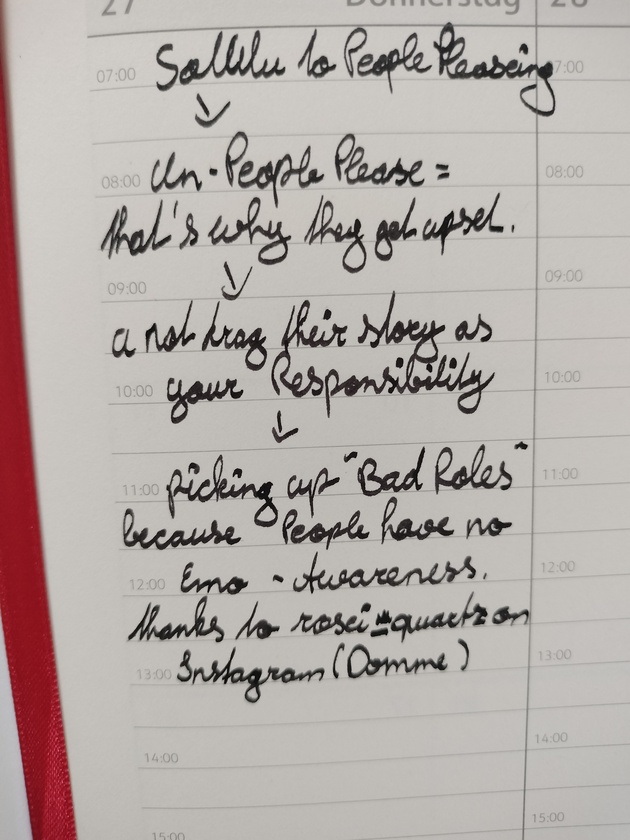 27 Donnerstag 28
07:00 to People Pleaseing 07:00
08:00 Un-People Please = 08:00
that's why they get upset.
09:00 09:00
a not drag their story as
10:00 your Responsibility 10:00
11:00 picking up "Bad Roles" 11:00
because People have no
12:00 Emo - Awareness. 12:00
thanks to rosei-quartz on
13:00 Instagram (Domme) 13:00
14:00 14:00
15:00 15:00